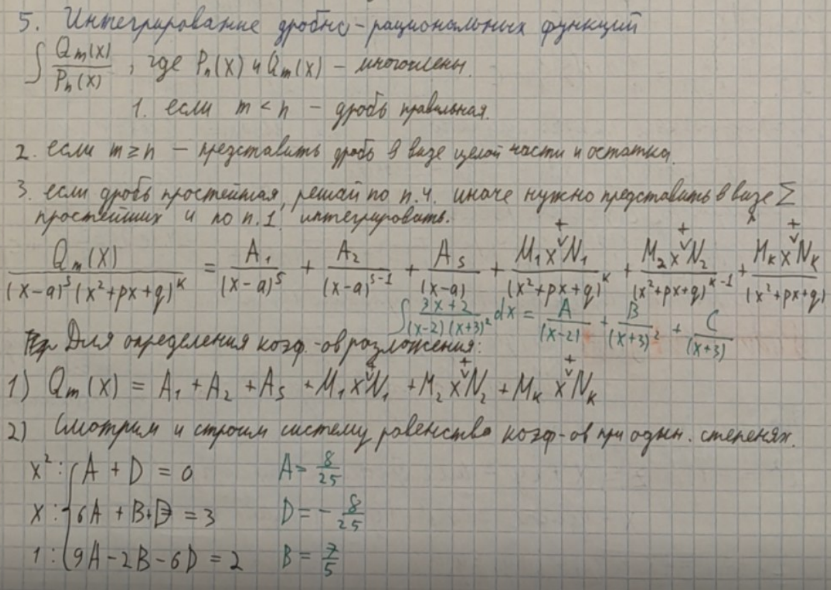 5. Интегрирование дробно-рациональных функций
∫ Qm(x)/Pn(x), где Pn(x) и Qm(x) – многочлены.
1. если m < n – дробь правильная.
2. если m ≥ n – представить дробь в виде целой части и остатка.
3. если дробь простейшая, решай по п.4. иначе нужно представить в виде Σ
простейших и по п.1 интегрировать.
Qm(x)/((x-a)^s (x²+px+q)^k) = A₁/(x-a)^s + A₂/(x-a)^(s-1) + As/(x-a) + (M₁x+N₁)/(x²+px+q)^k + (M₂x+N₂)/(x²+px+q)^(k-1) + (Mkx+Nk)/(x²+px+q)
∫ (3x+2)/((x-2)(x+3)²) dx = A/(x-2) + B/(x+3)² + C/(x+3)
Для определения коэф-ов разложения:
1) Qm(x) = A₁ + A₂ + As + M₁x+N₁ + M₂x+N₂ + Mkx+Nk
2) Смотрим и строим систему равенства коэф-ов при один. степенях.
x²: { A + D = 0 A = 8/25
x: { 6A + B + D = 3 D = - 8/25
1: { 9A - 2B - 6D = 2 B = 7/5